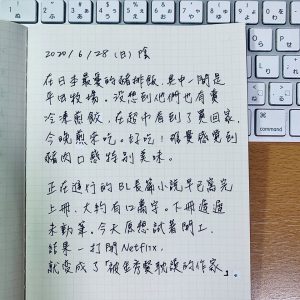 2020/6/28(日)陰
在日本最愛的豬排飯,其中一間是
平田牧場。沒想到他們也有賣
冷凍煎餃,在超市看到了買回家,
今晚煎來吃。好吃!確實感覺到
豬肉口感特別美味。
正在進行的BL長篇小說早已寫完
上冊,大約有口萬字。下冊遲遲
未動筆。今天原想試著開工,
結果一打開Netflix,
就變成了「被金秀賢耽誤的作家」。
command